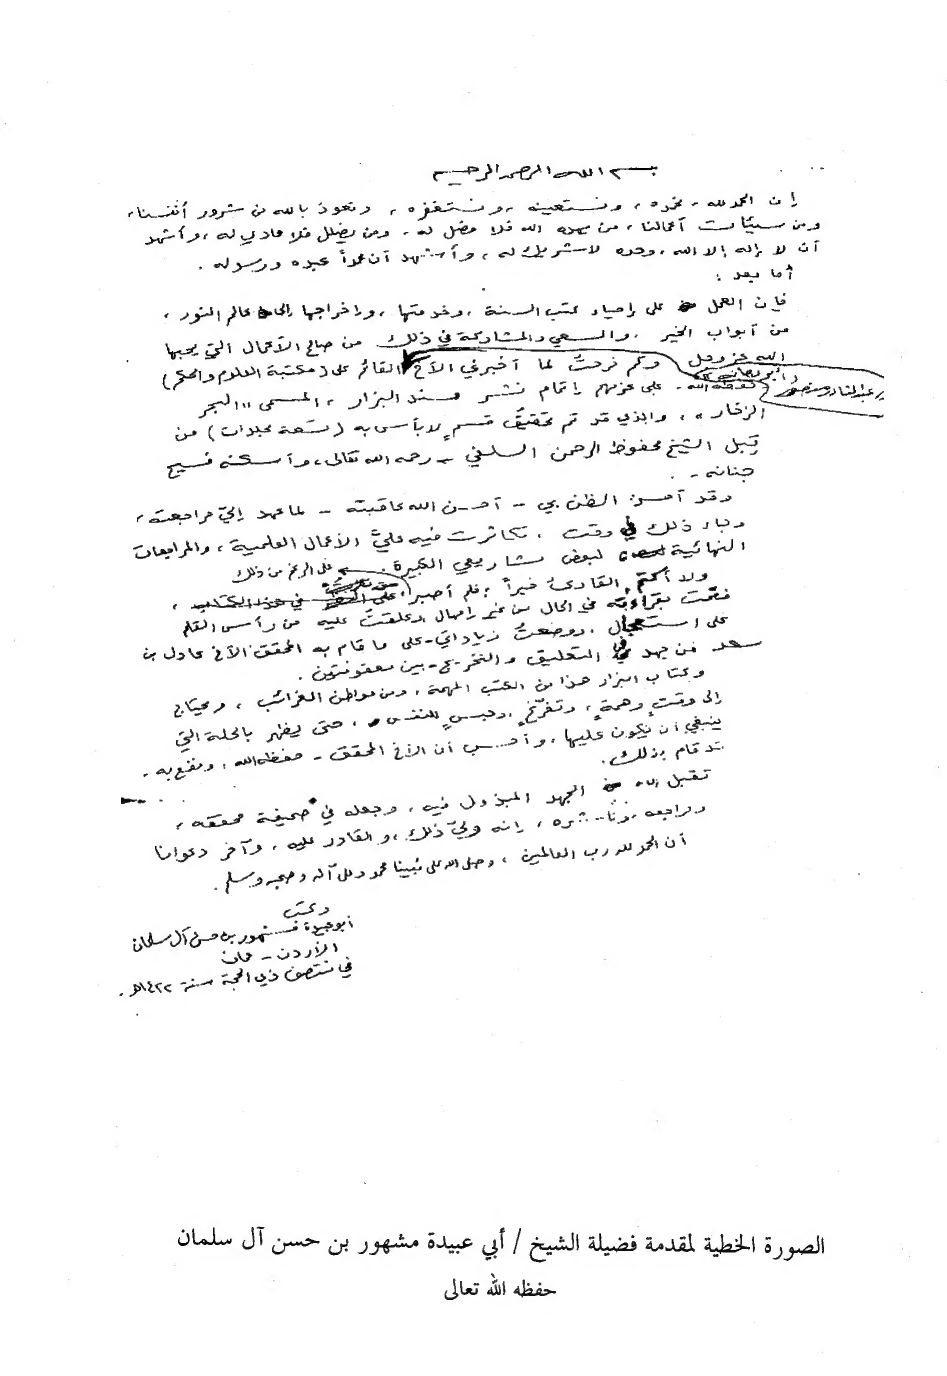 بسم الله الرحمن الرحيم
إن الحمد لله، نحمده، ونستعينه، ونستغفره، ونعوذ بالله من شرور أنفسنا،
ومن سيئات أعمالنا، من يهده الله فلا مضل له، ومن يضلل فلا هادي له، وأشهد
أن لا إله إلا الله، وحده لا شريك له، وأشهد أن محمداً عبده ورسوله.
أما بعد:
فإن العمل على إحياء كتب السنة، وخدمتها، وإخراجها إلى عالم النور،
من أبواب الخير، والسعي والمشاركة في ذلك من صالح الأعمال التي يحبها
الله عز وجل وكم فرحتُ لما أخبرني الأخ القائم على (مكتبة العلوم والحكم)
(أبو عبد القادر منصور
حفظه الله - على عزمهم إتمام نشر مسند البزار، المسمى «البحر
الزخار»، والذي قد تم تحقيق قسمٍ لا بأس به (تسعة مجلدات) من
قِبل الشيخ محفوظ الرحمن السلفي - رحمه الله تعالى، وأسكنه فسيح
جنانه -.
وقد أحسن الظن بي - أحسن الله عاقبته - لما عهد إليّ مراجعته،
وجاء ذلك في وقت، تكاثرت فيه عليَّ الأعمال العلمية، والمراجعات
النهائية لبعض مشاريعي الكبيرة. على الرغم من ذلك
ولا أكتم القارئ خبراً؛ فلم أصبر
فقمت بقراءته في الحال من غير إمهال وعلقتُ عليه من رأس القلم
على استعجال، ووضعتُ زياداتي - على ما قام به المحقق الأخ عادل بن
سعد من جهد في التعليق والتخريج - بين معقوفتين.
وكتاب البزار هذا من الكتب المهمة، ومن مواطن الغرائب، ويحتاج
إلى وقتٍ وهمةٍ، وتفرّغٍ وحبسٍ للنفس، حتى يظهر بالحلة التي
ينبغي أن يكون عليها، وأحسب أن الأخ المحقق - حفظه الله، ونفع به -
قد قام بذلك.
تقبل الله الجهد المبذول فيه، وجعله في صحيفة محققه،
ومراجعه، وناشره، إنه وليّ ذلك، والقادر عليه، وآخر دعوانا
أن الحمد لله رب العالمين، وصلى الله على نبينا محمد وعلى آله وصحبه وسلم.
وكتب
أبو عبيدة مشهور بن حسن آل سلمان
الأردن - عمان
في منتصف ذي الحجة سنة ١٤٢٢هـ.
الصورة الخطية لمقدمة فضيلة الشيخ / أبي عبيدة مشهور بن حسن آل سلمان
حفظه الله تعالى